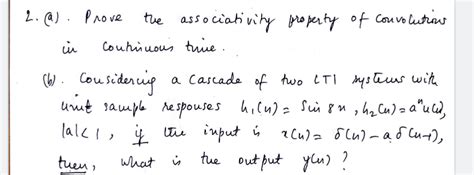 2. (a). Prove the associativity property of convolutions
in continuous time.
(b). Considering a cascade of two LTI systems with
unit sample responses h₁(n) = Sin 8n, h₂(n) = aⁿu(n),
|a|<1, if the input is x(n) = δ(n) - a δ(n-1),
then, what is the output y(n) ?